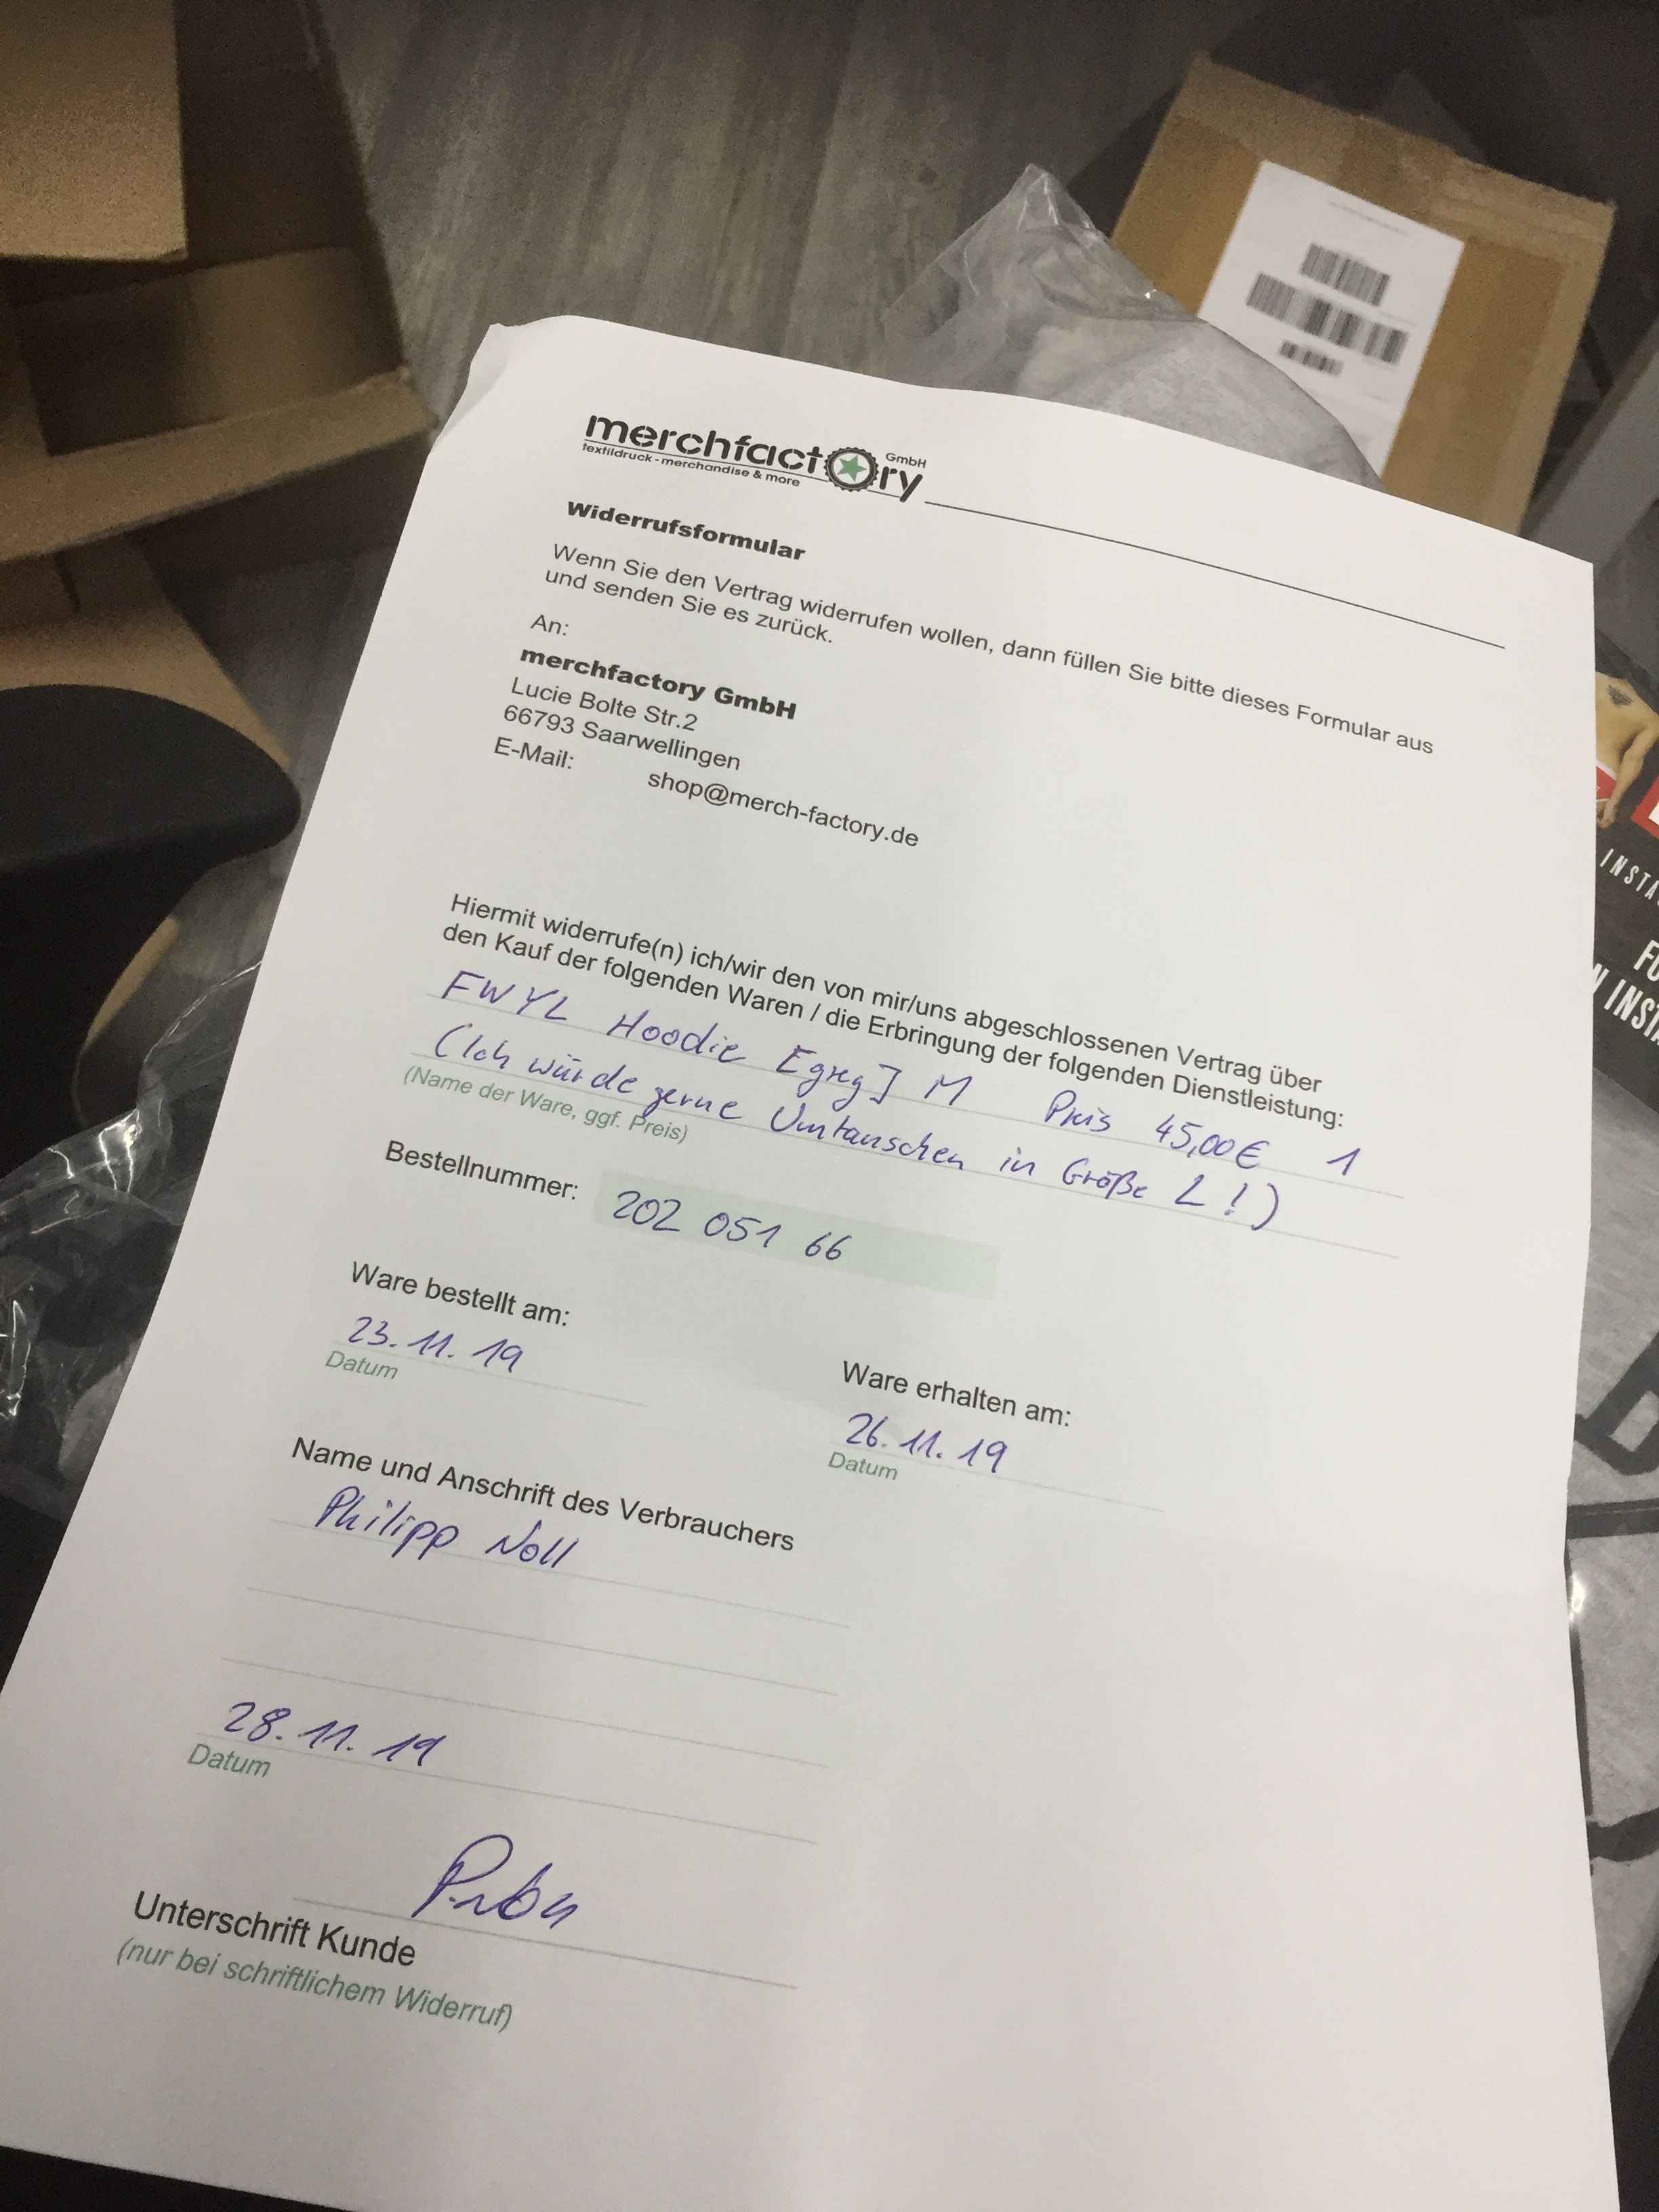 merchfactory GmbH
textildruck - merchandise & more
Widerrufsformular
Wenn Sie den Vertrag widerrufen wollen, dann füllen Sie bitte dieses Formular aus
und senden Sie es zurück.
An:
merchfactory GmbH
Lucie Bolte Str.2
66793 Saarwellingen
E-Mail: shop@merch-factory.de
Hiermit widerrufe(n) ich/wir den von mir/uns abgeschlossenen Vertrag über
den Kauf der folgenden Waren / die Erbringung der folgenden Dienstleistung:
FWYL Hoodie M Preis 45,00€ 1
(Ich würde gerne Umtauschen in Größe L!)
(Name der Ware, ggf. Preis)
Bestellnummer: 202 051 66
Ware bestellt am:
23.11.19
Datum
Ware erhalten am:
26.11.19
Datum
Name und Anschrift des Verbrauchers
Philipp Noll
28.11.19
Datum
Unterschrift Kunde
(nur bei schriftlichem Widerruf)